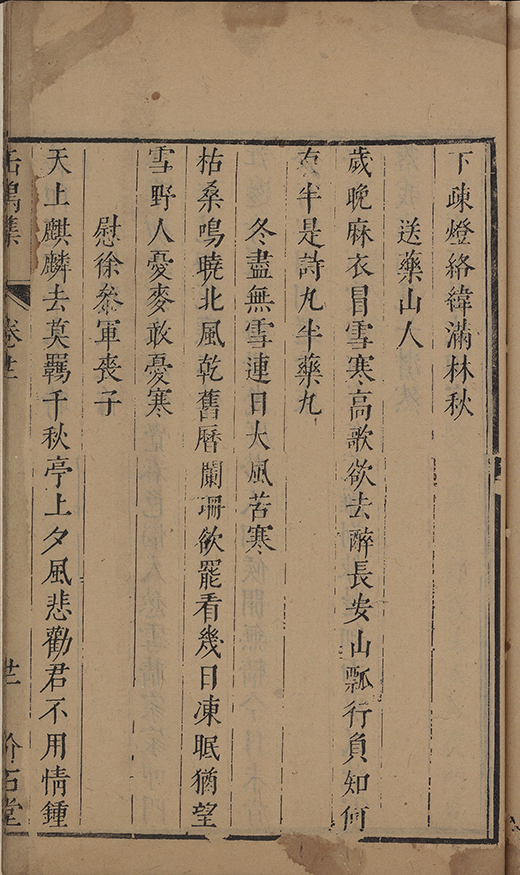 下疎燈絡緯滿林秋
送藥山人
歲晚麻衣冒雪寒高歌欲去醉長安山瓢行負知何
有半是詩九半藥九
冬盡無雪連日大風苦寒
枯桑鳴曉北風乾舊曆闌珊欲罷看幾日凍眠猶望
雪野人憂麥敢憂寒
慰徐叅軍喪子
天上麒麟去莫羈千秋亭上夕風悲勸君不用情鍾
岳鳴集 卷廿 廿 介石堂